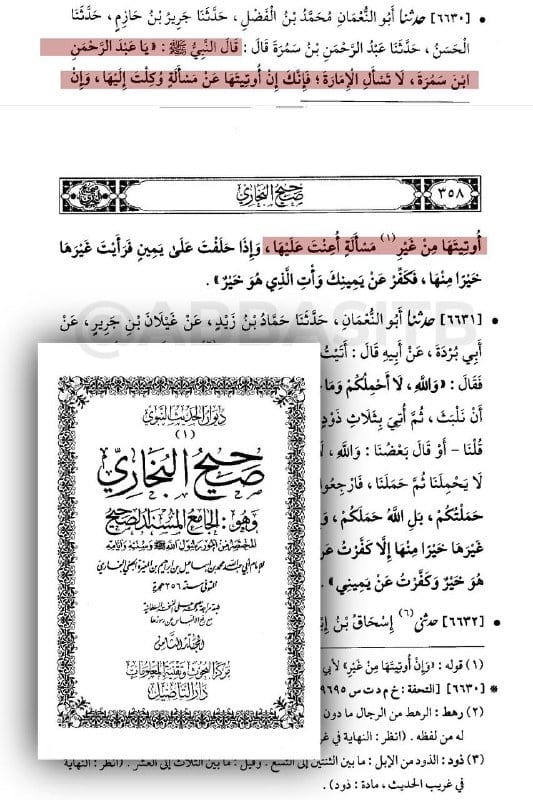 • [٦٦٣٠] حدثنا أَبُو النُّعْمَانِ مُحَمَّدُ بْنُ الْفَضْلِ ، حَدَّثَنَا جَرِيرُ بْنُ حَازِمٍ ، حَدَّثَنَا
الْحَسَنُ ، حَدَّثَنَا عَبْدُ الرَّحْمَنِ بْنُ سَمُرَةَ قَالَ : قَالَ النَّبِيُّ ﷺ : «يَا عَبْدَ الرَّحْمَنِ
ابْنَ سَمُرَةَ ، لَا تَسْأَلِ الْإِمَارَةَ ؛ فَإِنَّكَ إِنْ أُوتِيتَهَا عَنْ مَسْأَلَةٍ وُكِلْتَ إِلَيْهَا ، وَإِنْ
صحيح البخاري
٣٥٨
أُوتِيتَهَا مِنْ غَيْرِ (١) مَسْأَلَةٍ أُعِنْتَ عَلَيْهَا ، وَإِذَا حَلَفْتَ عَلَىٰ يَمِينٍ فَرَأَيْتَ غَيْرَهَا
خَيْرًا مِنْهَا ، فَكَفِّرْ عَنْ يَمِينِكَ وَأْتِ الَّذِي هُوَ خَيْرٌ» .
@ABBASITB
• [٦٦٣١] حدثنا أَبُو النُّعْمَانِ ، حَدَّثَنَا حَمَّادُ بْنُ زَيْدٍ ، عَنْ غَيْلَانَ بْنِ جَرِيرٍ ، عَنْ
أَبِي بُرْدَةَ ، عَنْ أَبِيهِ قَالَ : أَتَيْتُ
فَقَالَ : «وَاللَّهِ ، لَا أَحْمِلُكُمْ وَمَا
أَنْ نَلْبَثَ ، ثُمَّ أُتِيَ بِثَلَاثِ ذَوْدٍ
قُلْنَا - أَوْ قَالَ بَعْضُنَا : وَاللَّهِ ، لَا
لَا يَحْمِلَنَا ثُمَّ حَمَلَنَا ، فَارْجِعُوا
حَمَلْتُكُمْ ، بَلِ اللَّهُ حَمَلَكُمْ ، وَ
غَيْرَهَا خَيْرًا مِنْهَا إِلَّا كَفَّرْتُ عَنْ
هُوَ خَيْرٌ وَكَفَّرْتُ عَنْ يَمِينِي» .
• [٦٦٣٢] حدثني (٦) إِسْحَاقُ بْنُ إِبْ
(١) قوله : «وَإِنْ أُوتِيتَهَا مِنْ غَيْرِ» لأبي
* [٦٦٣٠] [التحفة : خ م د ت س ٩٦٩٥
(٢) رهط : الرهط من الرجال ما دون
له من لفظه . (انظر : النهاية في غر
(٣) ذود : الذود من الإبل : ما بين الثنتين إلى التسع . وقيل : ما بين الثلاث إلى العشر . (انظر : النهاية
في غريب الحديث ، مادة : ذود) .
ديوان الحديث النبوي
(١)
صحيح البخاري
وهو : الجامع المسند الصحيح
المختصر من أمور رسول الله ﷺ وسننه وأيامه
للإمام أبي عبد الله محمد بن إسماعيل بن إبراهيم بن المغيرة الجعفي البخاري
المتوفى سنة ٢٥٦ هجرية
المجلد الثامن
مركز البحوث وتقنية المعلومات
دار التأصيل